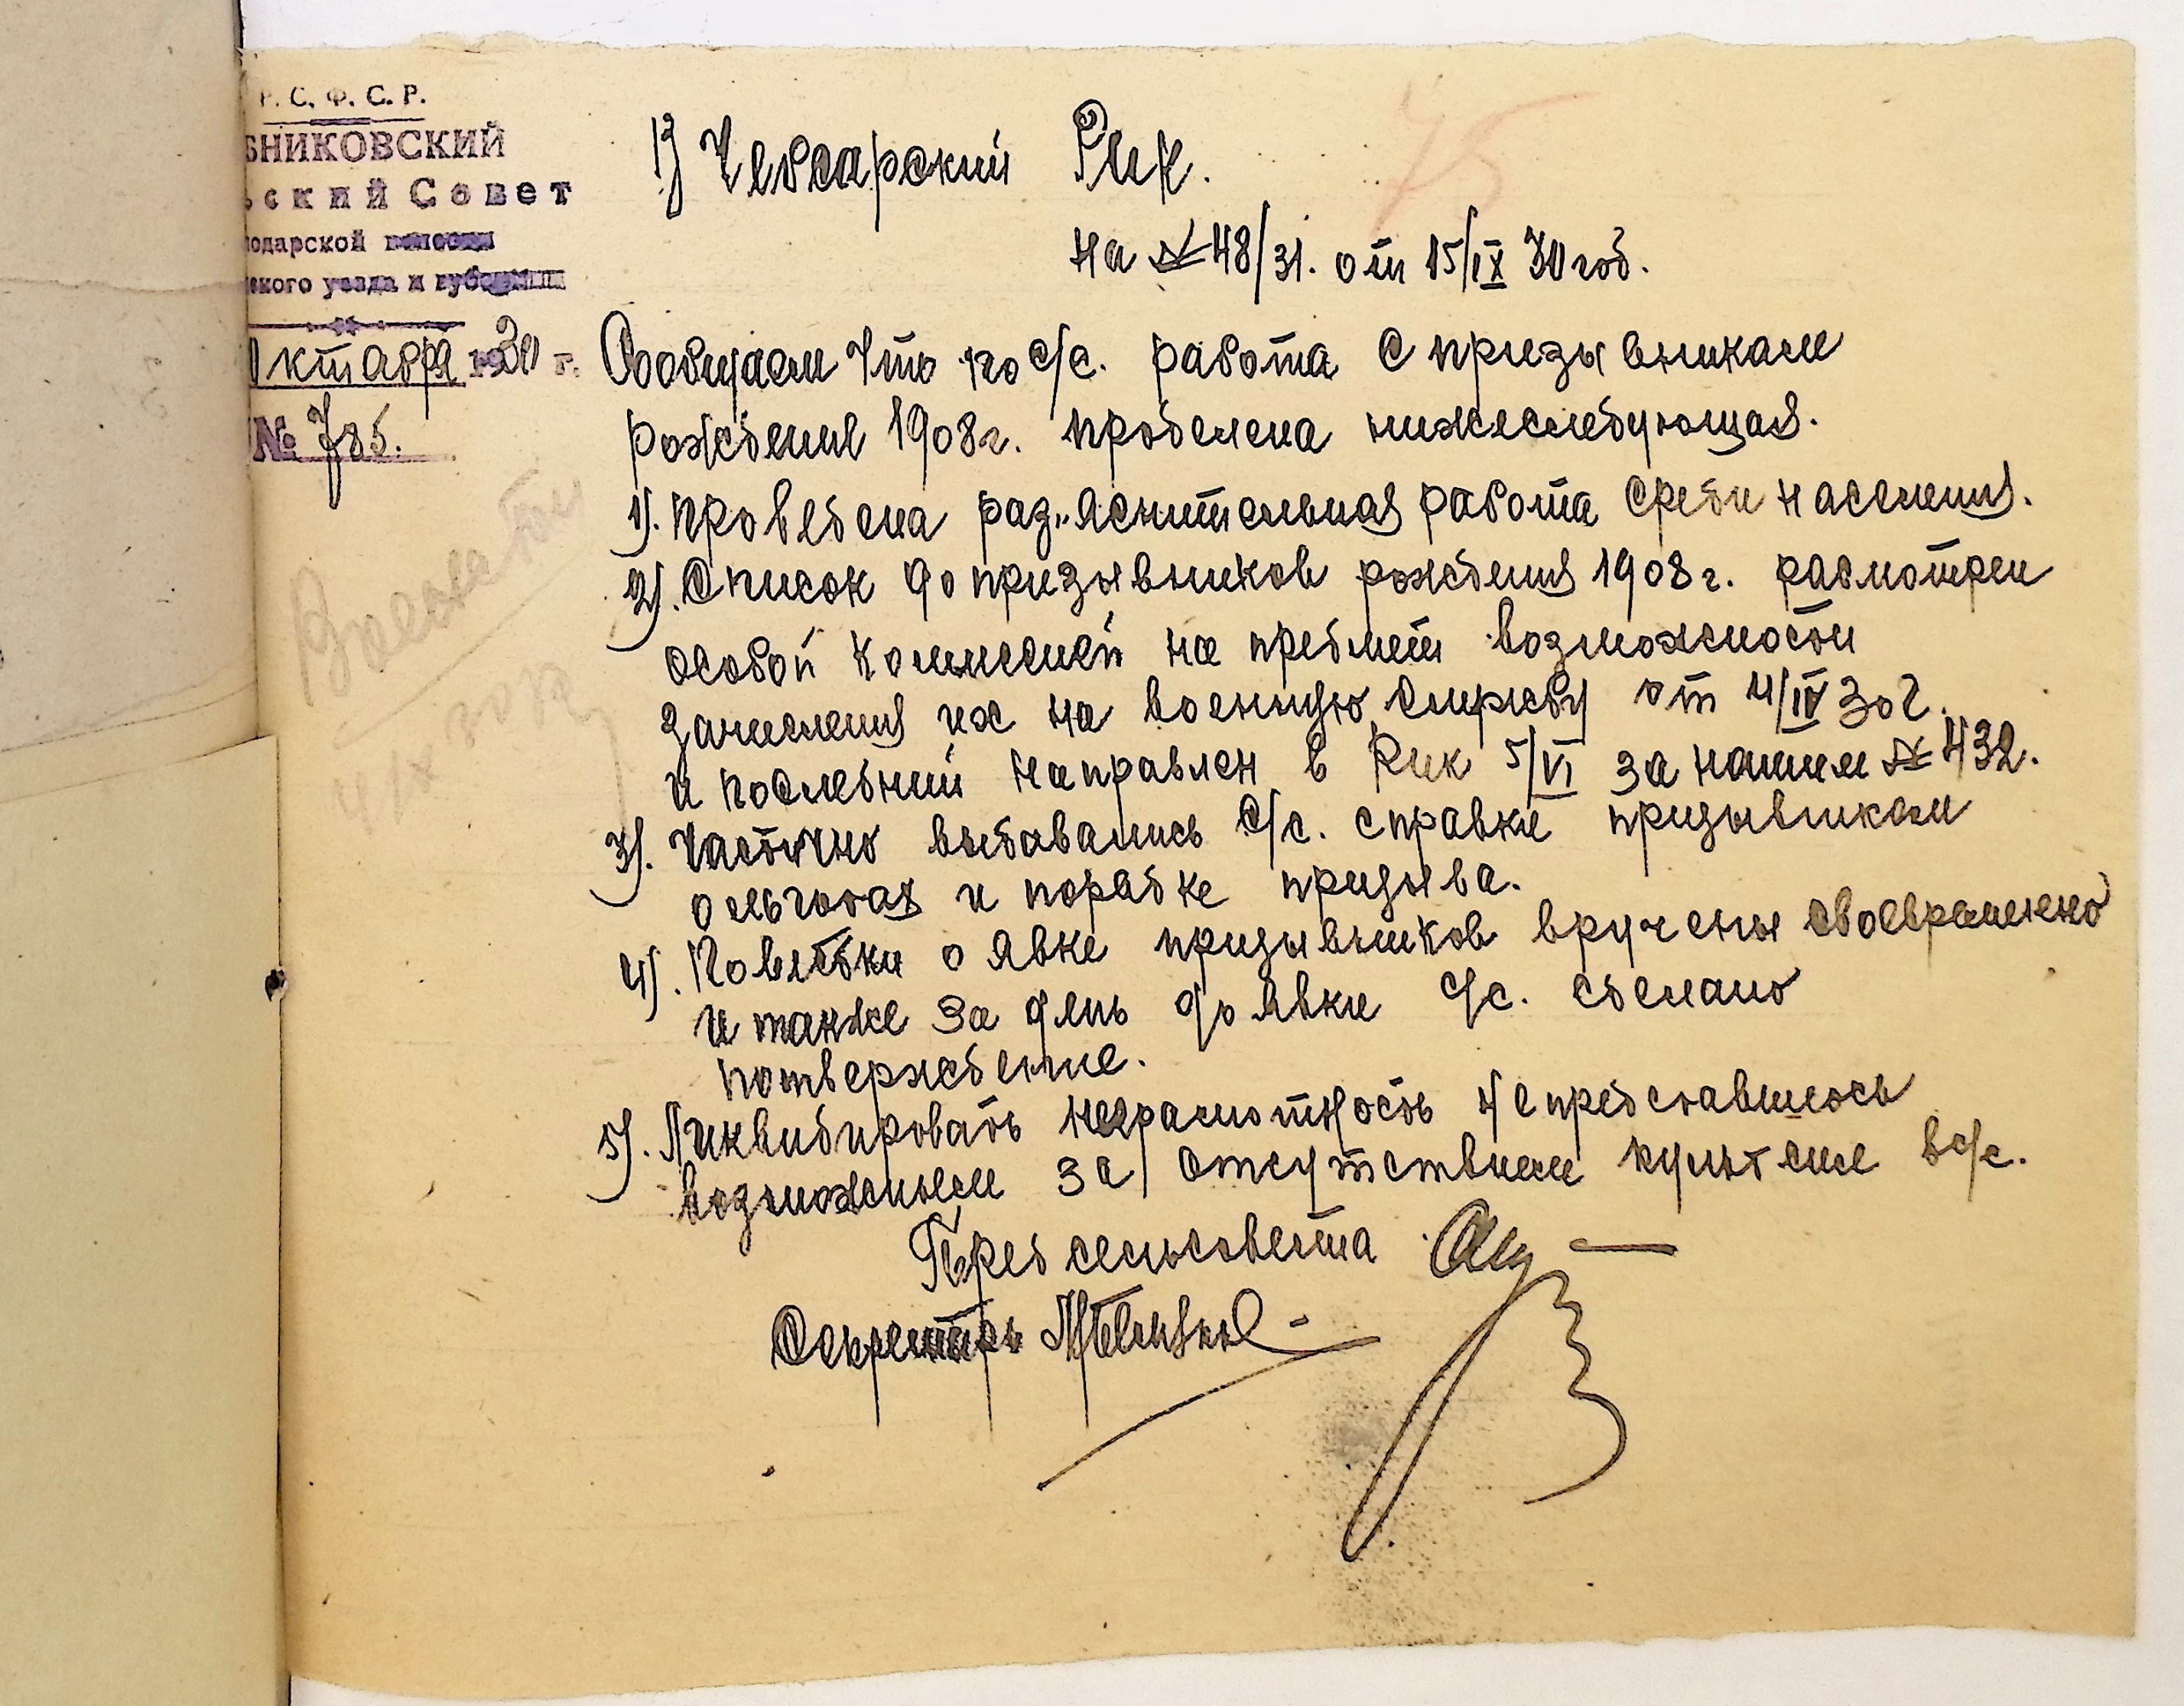 Р. С. Ф. С. Р.
БНИКОВСКИЙ
ьский Совет
одарской волости
ского уезда и губернии
Октября 1930 г.
№ 785.
75
1) Чебсарский Рик.
на № 48/31. от 15/IX 30 год.
Сообщаем что по с/с. работа с призывникам
рождения 1908 г. проделена нижеследующая.
1). Проведена раз"яснительная работа среди населения.
2). Список допризывников рождения 1908 г. расмотрен
особой комиссией на предмет возможности
зачисления их на военную службу от 4/IV 30 г.
и последний направлен в Рик 5/VI за нашим № 432.
3). Частично выдавались с/с. справки призывникам
о льготах и порядке призыва.
4). Повестки о явке призывников вручены своевременно
и также за день до явки с/с. сделано
потверждение.
5). Ликвидировать неграмотность не предоставилось
возможным за отсутствием культ сил в с/с.
Пред сельсовета
Секретарь